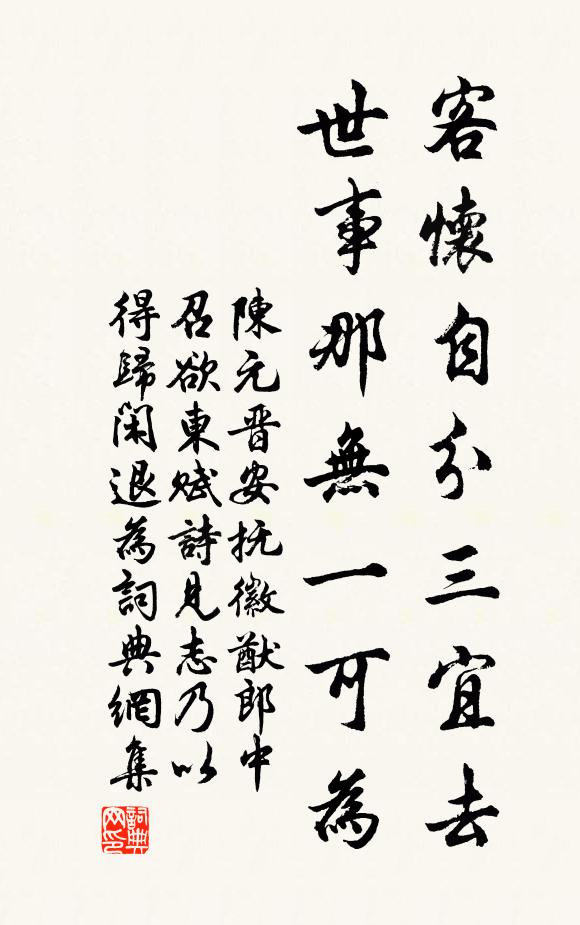 客懷自分三宜去
世事那無一可為
陳元晋安抚徽猷郎中
召欲東赋詩見志乃以
得歸闲退為詞典網集
詞典網印